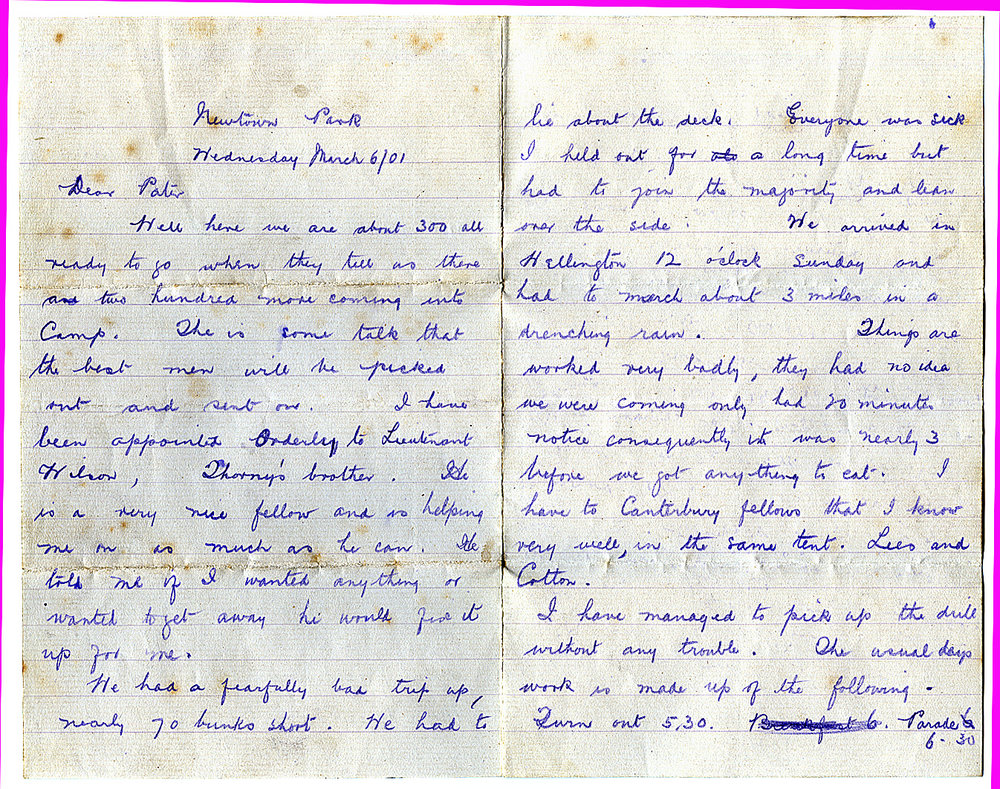 Newtown Park
Wednesday March 6/01
Dear Pater
Well here we are about 300 all
ready to go when they tell us there
are two hundred more coming into
Camp. The is some talk that
the best men will be picked
out and sent on. I have
been appointed Orderley to Lieutenant
Wilson, Thorny's brother. He
is a very nice fellow and is helping
me on as much as he can. He
told me if I wanted anything or
wanted to get away he would fix it
up for me.
We had a fearfully bad trip up,
nearly 70 bunks short. We had to
lie about the deck. Everyone was sick
I held out for a long time but
had to join the majority and lean
over the side. We arrived in
Wellington 12 o'clock Sunday and
had to march about 3 miles in a
drenching rain. Things are
worked very badly, they had no idea
we were coming only had 20 minutes
notice consequently it was nearly 3
before we got anything to eat. I
have to Canterbury fellows that I know
very well, in the same tent. Lees and
Cotton.
I have managed to pick up the drill
without any trouble. The usual days
work is made up of the following.
Turn out 5,30. Breakfast 6. Parade
6-30